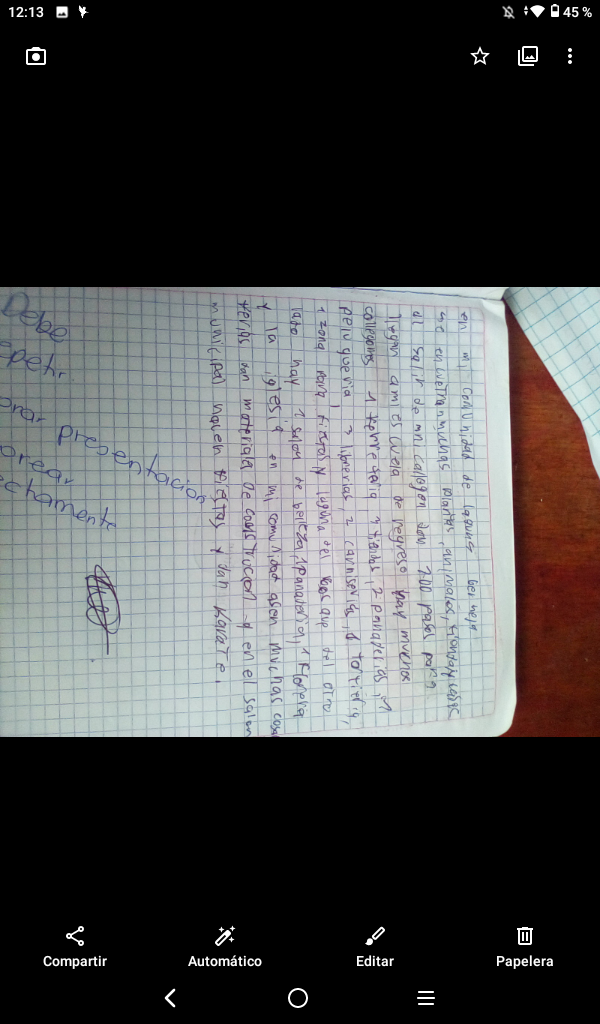 12:13
45 %
en mi comunidad de laguna bermeja
se encuentran muchas plantas, animales,
al salir de mi callejon son 700 pasos para
llegar ami escuela de regreso hay muchos
callejones 1 ferreteria 2 tiendas, 2 papiaderias, 1
peluqueria, 2 liberias, 2 carniserias, 1 tortilleria,
1 zona para y laguna del del otro
lado hay 1 salon de belleza, 1 panaderia, 1 Floreria
y la iglesia en mi comunidad asen Muchas cosas
de construccion y en el salon
municipal hasen fiestas y dan Karate.
Debe
epetir
orar presentación
orear
ectamente
Compartir
Automático
Editar
Papelera